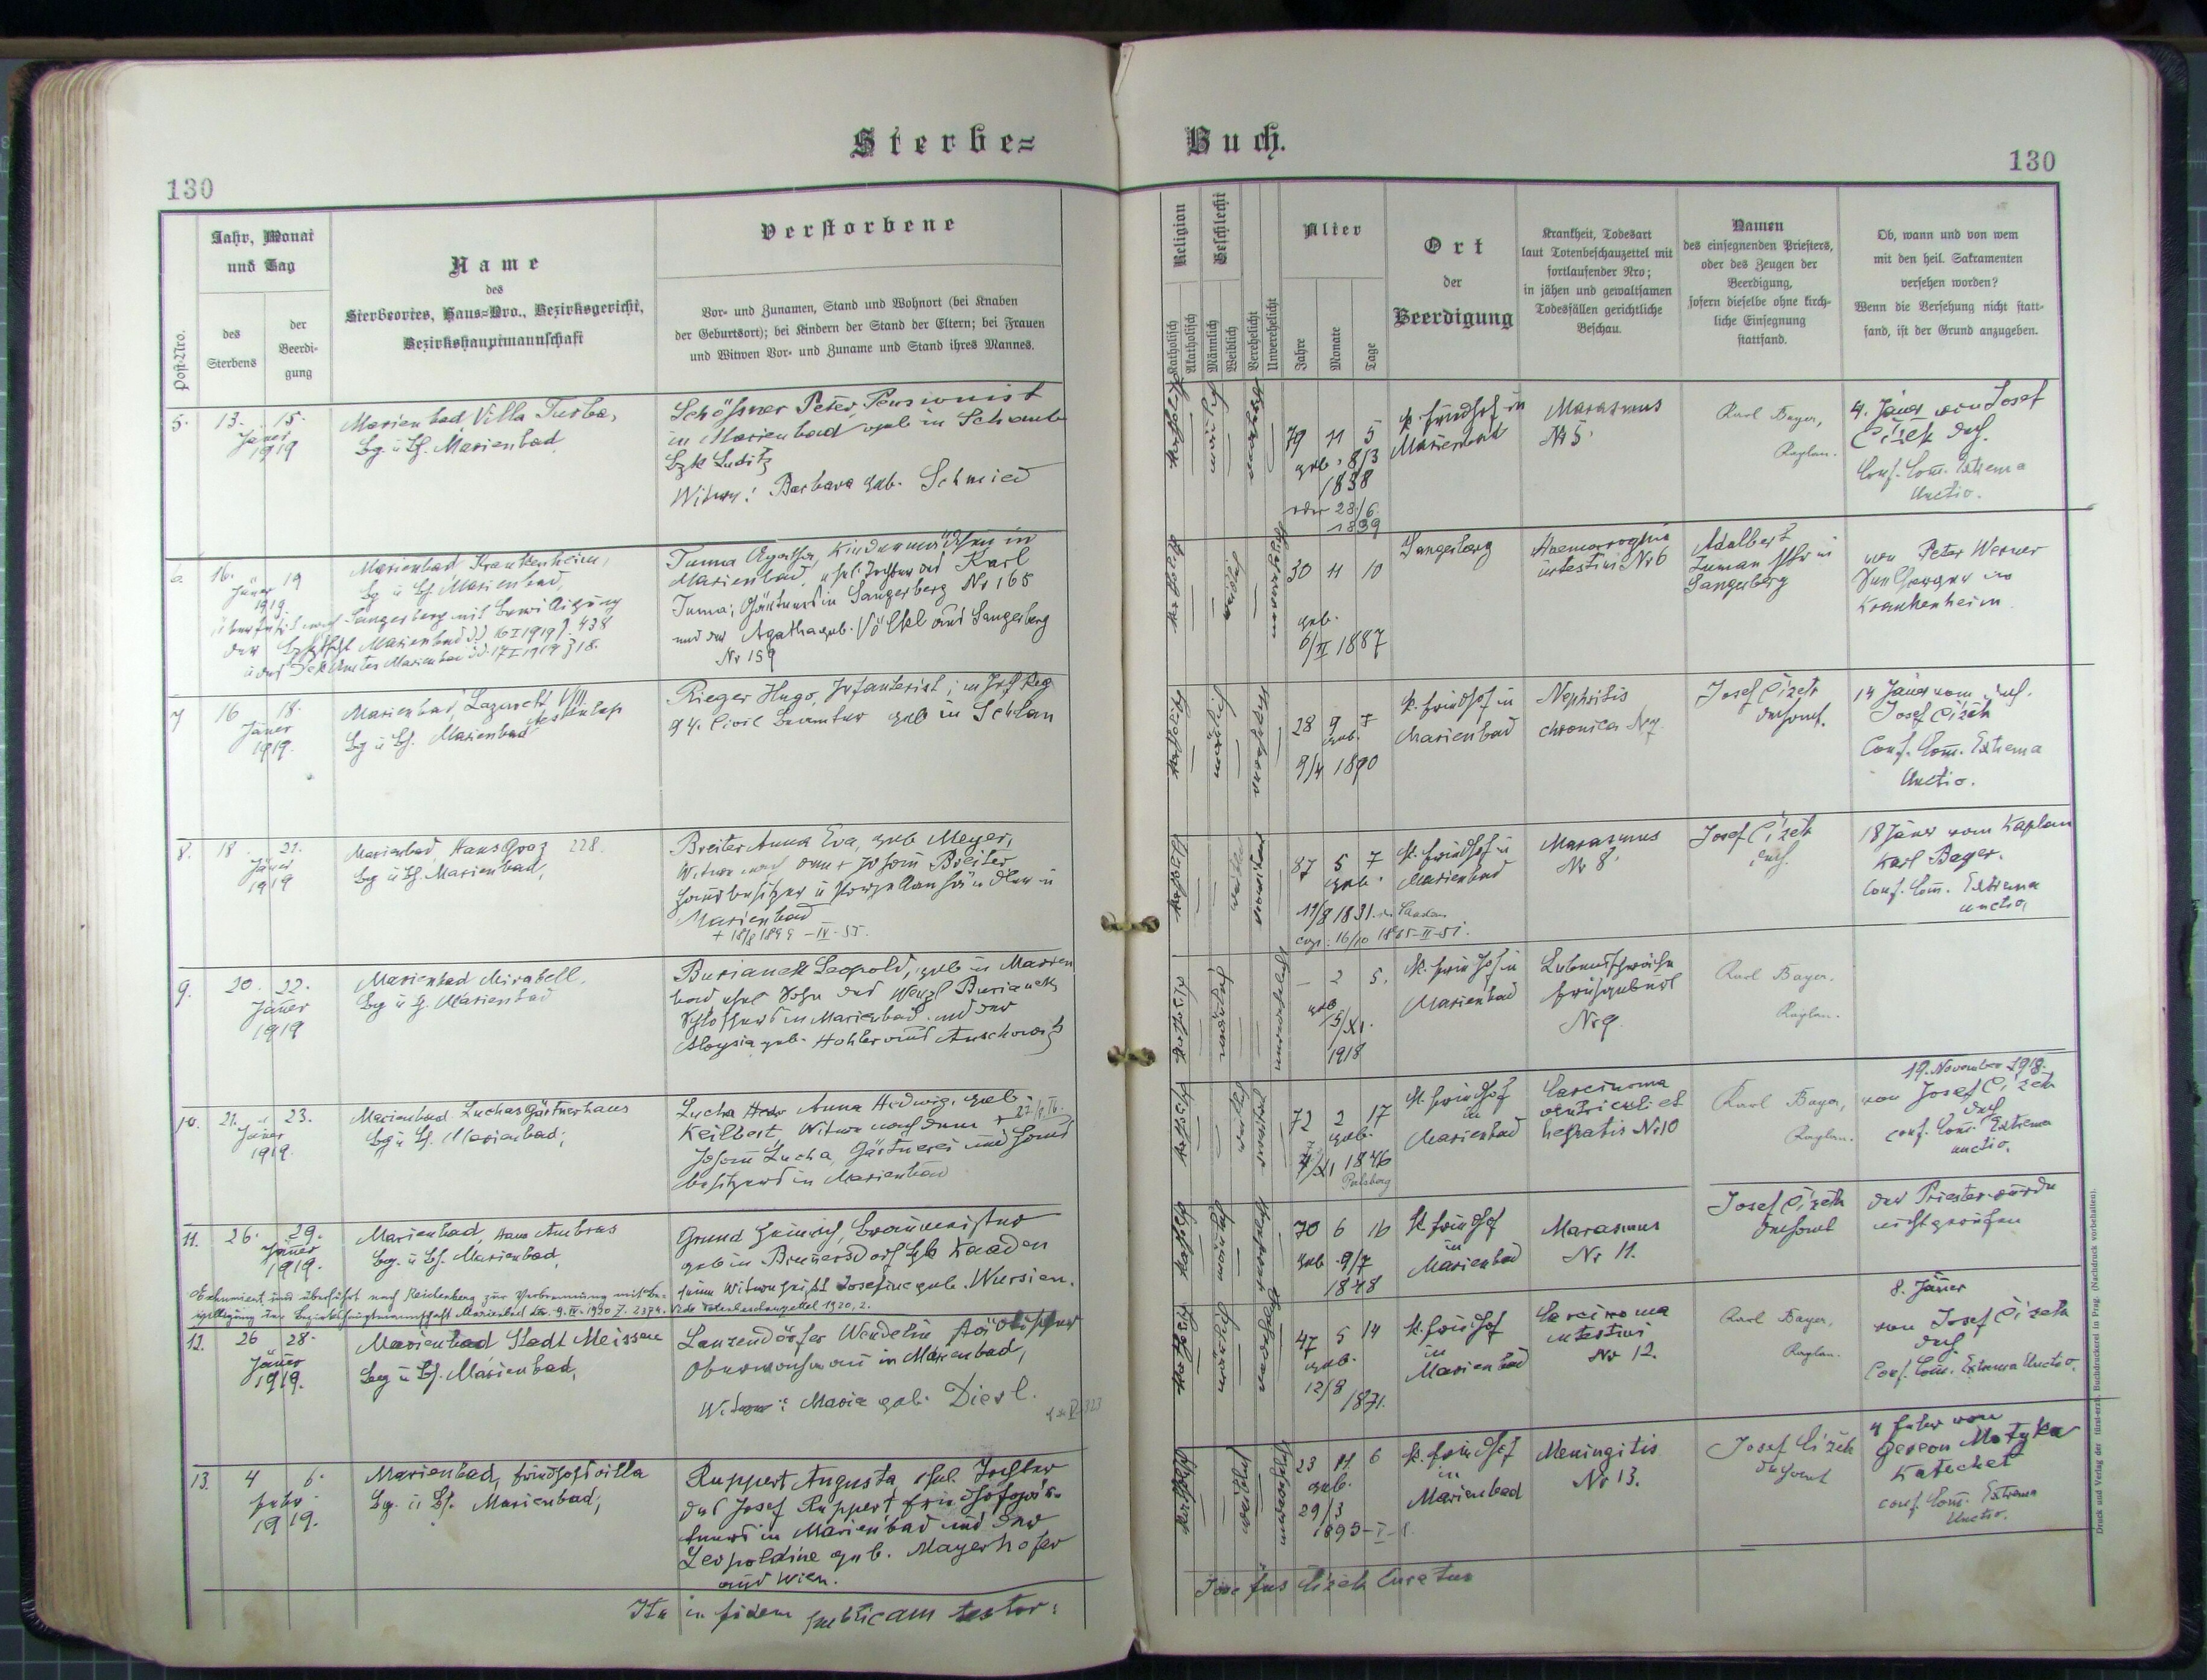 Sterbe=
Buch.
130
130
Post-Nro.
Jahr, Monat
und Tag
des
Sterbens
der
Beerdi-
gung
Name
des
Sterbeortes, Haus=Nro., Bezirksgericht,
Bezirkshauptmannschaft
Verstorbene
Vor- und Zunamen, Stand und Wohnort (bei Knaben
der Geburtsort); bei Kindern der Stand der Eltern; bei Frauen
und Witwen Vor- und Zuname und Stand ihres Mannes.
Religion
Katholisch
Akatholisch
Geschlecht
Männlich
Weiblich
Verehelicht
Unverehelicht
Alter
Jahre
Monate
Tage
Ort
der
Beerdigung
Krankheit, Todesart
laut Totenbeschauzettel mit
fortlaufender Nro;
in jähen und gewaltsamen
Todesfällen gerichtliche
Beschau.
Namen
des einsegnenden Priesters,
oder des Zeugen der
Beerdigung,
sofern dieselbe ohne kirch-
liche Einsegnung
stattfand.
Ob, wann und von wem
mit den heil. Sakramenten
versehen worden?
Wenn die Versehung nicht statt-
fand, ist der Grund anzugeben.
5. 13. 15.
Jäner
1919
Marienbad, Villa Turba,
Bg. u Bh. Marienbad
Schößner Peter, Pensionist
in Marienbad, geb in Schaub
Bzk Luditz
Witwe: Barbara geb. Schmied
katholisch
männlich
verehelicht
79 11 5
geb. 8/3
1838
oder 28/6.
1839
k. Friedhof in
Marienbad
Marasmus
Nr 5.
Karl Bayer,
Kaplan.
4. Jäner von Josef
Čížek Dech.
Conf. Com. Extrema
Unctio.
6. 16. 19
Jäner
1919.
Marienbad Krankenheim,
Bg u Bh. Marienbad,
überführt nach Sangerberg mit Bewilligung
der Bzkhsch Marienbad dd 16 I 1919 J. 438
u des Dekanates Marienbad dd 17 I 1919 J 18.
Tuma Agatha, Kindermädchen in
Marienbad, ehel. Tochter des Karl
Tuma, Gärtners in Sangerberg Nr 165
und der Agatha geb. Völkl aus Sangerberg
Nr 159
katholisch
weiblich
unverehelicht
30 11 10
geb.
6/II 1887
Sangerberg
Haemorrogia
intestini Nr 6
Adalbert
Tuman Pfr in
Sangerberg
von Peter Werner
Krankenheim.
7 16 18.
Jäner
1919.
Marienbad, Lazarett VIII
Bg u Bh. Marienbad
Rieger Hugo, Infanterist im Inf Reg
94. Civil Beamter geb in Schlan
katholisch
männlich
28 9 7
geb.
9/4 1890
k. Friedhof in
Marienbad
Nephritis
chronica Nr 7.
Josef Čížek
Dechant.
14 Jäner vom Dech.
Josef Čížek
Conf. Com. Extrema
Unctio.
8. 18 21.
Jäner
1919
Marienbad, Haus Graz 228.
Bg u Bh. Marienbad,
Breiter Anna Eva, geb Meyer,
Witwe nach dem + Johann Breiter
Hausbesitzer u Porzellanhändler in
Marienbad
+ 18/8 1899 – IV – 55.
katholisch
weiblich
verwitwet
87 5 7
geb.
11/8 1831.
cop: 16/10 1855–II–51.
k. Friedhof in
Marienbad
Marasmus
Nr 8.
Josef Čížek
Dech.
18 Jäner vom Kaplan
Karl Bayer.
Conf. Com. Extrema
unctio
9. 20. 22.
Jäner
1919
Marienbad Mirabell.
Bg u Bh. Marienbad
Burianek Leopold, geb in Marien
bad ehel Sohn des Wenzl Burianek
Schlossers in Marienbad und der
Aloysia geb. Hohler aus Auschowitz
katholisch
männlich
unverehelicht
– 2 5.
geb
15/XI.
1918
k. Friedhof in
Marienbad
Lebensschwäche
Frühgeburt
Nr 9.
Karl Bayer.
Kaplan.
10. 21. 23.
Jäner
1919.
Marienbad Luchas Gärtnerhaus
Bg u Bh. Marienbad;
Lucha Anna Hedwig, geb.
Keilbert Witwe nach dem +
Johann Lucha, Gärtnerei und Haus
besitzers in Marienbad
katholisch
weiblich
verwitwet
72 2 17
geb.
4/XI 1846
k. Friedhof
in
Marienbad
Carcinoma
ventriculi et
hepatis Nr 10
Karl Bayer,
Kaplan.
19. November 1918.
von Josef Čížek
Dech
conf. Com. Extrema
unctio.
11. 26. 29.
Jäner
1919.
Marienbad, Haus Ambras
Bg. u Bh. Marienbad,
Exhumiert und überführt nach Reichenberg zur Verbrennung mit Be-
willigung der Bezirkshauptmannschaft Marienbad dto. 9. IV. 1920 J. 2374. Vide Totenbeschauzettel 1920, 2.
Grund Heinrich, Braumeister
geb in Brunnersdorf Bzk Kaaden
seine Witwe heißt Josefine geb. Wursien.
katholisch
männlich
verehelicht
70 6 16
geb. 9/7
1848
k. Friedhof
in
Marienbad
Marasmus
Nr 11.
Josef Čížek
Dechant
Der Priester wurde
nicht gerufen
12. 26 28.
Jäner
1919.
Marienbad Stadt Meissen
Bg u Bh. Marienbad,
Lanzendörfer Wendelin
in Marienbad,
Witwe: Maria geb. Dierl.
katholisch
männlich
verehelicht
47 5 14
geb.
12/8
1871.
k. Friedhof
in
Marienbad
Carcinoma
intestini
Nr 12.
Karl Bayer,
Kaplan.
8. Jäner
von Josef Čížek
Dech
Conf. Com. Extrema Unctio.
13. 4 6.
Feber
1919.
Marienbad, Friedhofsvilla
Bg. u Bh. Marienbad,
Ruppert Augusta, ehel. Tochter
des Josef Ruppert Friedhofsgär-
tners in Marienbad und der
Leopoldine geb. Mayerhofer
aus Wien.
katholisch
weiblich
unverehelicht
23 11 6
geb.
29/3
1895–I–
k. Friedhof
in
Marienbad
Meningitis
Nr 13.
Josef Čížek
Dechant
4 Feber von
Gereon Motyka
Katechet
conf. Com. Extrema
Unctio.
Ita in fidem publicam testor:
Josefus Čížek Curatus
Druck und Verlag der fürst-erzb. Buchdruckerei in Prag. (Nachdruck vorbehalten).